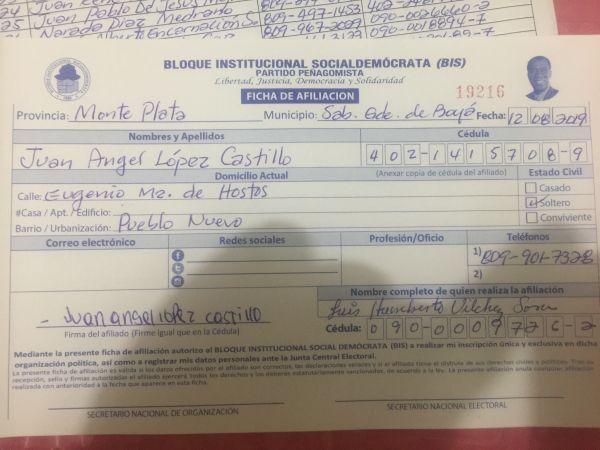 Juan Pablo De Jesus M 809-497-1453 402-
25 Nareda Diaz Medrano 809-967-2089 090-0026660-2
Alberto Encarnación Se 090-0018894-7
BLOQUE INSTITUCIONAL SOCIALDEMÓCRATA (BIS)
PARTIDO PEÑAGOMISTA
Libertad, Justicia, Democracia y Solidaridad
FICHA DE AFILIACION
19216
Provincia: Monte Plata Municipio: Sab. Gde. de Boyá Fecha: 12 08 2019
Nombres y Apellidos Cédula
Juan Angel López Castillo 402-1415708-9
Domicilio Actual (Anexar copia de cédula del afiliado) Estado Civil
Calle: Eugenio Ma. de Hostos Casado
#Casa / Apt. / Edificio: Soltero
Barrio / Urbanización: Pueblo Nuevo Conviviente
Correo electrónico Redes sociales Profesión/Oficio Teléfonos
1) 809-901-7328
2)
Nombre completo de quien realiza la afiliación
Juan angel lopez castillo Luis Humberto Vilchez Sosa
Firma del afiliado (Firme igual que en la Cédula) Cédula: 090-0009726-2
Mediante la presente ficha de afiliación autorizo al BLOQUE INSTITUCIONAL SOCIAL DEMÓCRATA (BIS) a realizar mi inscripción única y exclusiva en dicha
organización política, así como a registrar mis datos personales ante la Junta Central Electoral.
La presente ficha de afiliación es válida si los datos ofrecidos por el afiliado son correctos, las declaraciones veraces y si el afiliado tiene el disfrute de sus derechos civiles y políticos. Tras su
recepción, sello y firmas autorizadas el afiliado ejercerá todos los derechos y los deberes estatutariamente sancionados, de acuerdo a la ley. La presente afiliación anula cualquier afiliación
realizada con anterioridad a la fecha que aparece en esta ficha.
SECRETARIO NACIONAL DE ORGANIZACIÓN SECRETARIO NACIONAL ELECTORAL